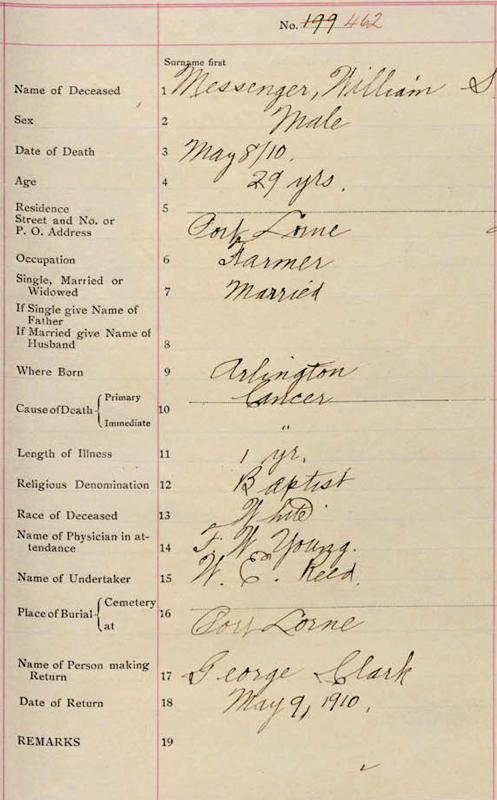 No. 199 462
Surname first
Name of Deceased 1 Messenger, William S
Sex 2 Male
Date of Death 3 May 8/10.
Age 4 29 yrs.
Residence 5
Street and No. or
P. O. Address Port Lorne
Occupation 6 Farmer
Single, Married or
Widowed 7 Married
If Single give Name of
Father
If Married give Name of
Husband 8
Where Born 9 Arlington
Cause of Death { Primary Cancer
10
Immediate "
Length of Illness 11 1 yr.
Religious Denomination 12 Baptist
Race of Deceased 13 White
Name of Physician in at-
tendance 14 F. W. Young.
Name of Undertaker 15 W. E. Reed.
Place of Burial { Cemetery
at 16 Port Lorne
Name of Person making
Return 17 George Clark
Date of Return 18 May 9, 1910.
REMARKS 19